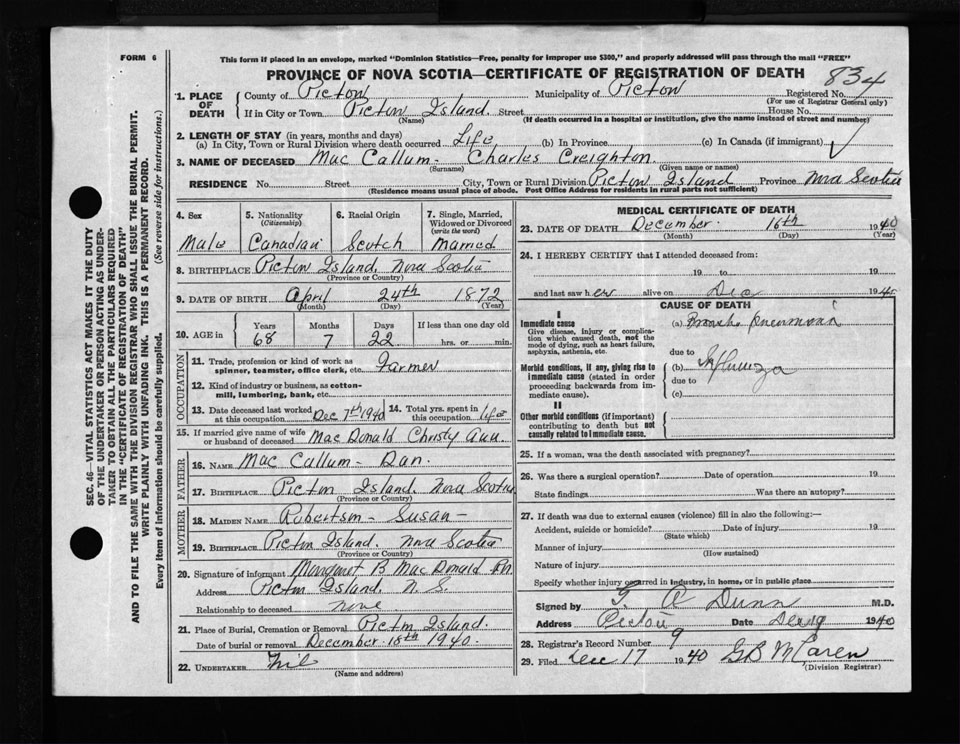 FORM 6
This form if placed in an envelope, marked "Dominion Statistics—Free, penalty for improper use $300," and properly addressed will pass through the mail "FREE"
PROVINCE OF NOVA SCOTIA—CERTIFICATE OF REGISTRATION OF DEATH 834
1. PLACE OF DEATH { County of Pictou Municipality of Pictou Registered No.
(For use of Registrar General only)
If in City or Town Pictou Island. Street House No.
(Name) (If death occurred in a hospital or institution, give the name instead of street and number)
2. LENGTH OF STAY (in years, months and days)
(a) In City, Town or Rural Division where death occurred Life (b) In Province (c) In Canada (if immigrant) ✓
3. NAME OF DECEASED Mac Callum - Charles Creighton.
(Surname) (Given name or names)
RESIDENCE No. Street City, Town or Rural Division Pictou Island Province Nova Scotia
(Residence means usual place of abode. Post Office Address for residents in rural parts not sufficient)
SEC. 46—VITAL STATISTICS ACT MAKES IT THE DUTY
OF THE UNDERTAKER OR PERSON ACTING AS UNDER-
TAKER TO OBTAIN ALL THE PARTICULARS REQUIRED
IN THE "CERTIFICATE OF REGISTRATION OF DEATH"
AND TO FILE THE SAME WITH THE DIVISION REGISTRAR WHO SHALL ISSUE THE BURIAL PERMIT.
WRITE PLAINLY WITH UNFADING INK. THIS IS A PERMANENT RECORD.
Every item of information should be carefully supplied. (See reverse side for instructions.)
4. Sex
Male
5. Nationality
(Citizenship)
Canadian
6. Racial Origin
Scotch
7. Single, Married, Widowed or Divorced
(write the word)
Married
8. BIRTHPLACE Pictou Island, Nova Scotia
(Province or Country)
9. DATE OF BIRTH April 24th 1872
(Month) (Day) (Year)
10. AGE in Years Months Days If less than one day old
68 7 22 hrs. or min.
OCCUPATION
11. Trade, profession or kind of work as
spinner, teamster, office clerk, etc. Farmer
12. Kind of industry or business, as cotton-
mill, lumbering, bank, etc.
13. Date deceased last worked at this occupation Dec 7th 1940 14. Total yrs. spent in this occupation Life
15. If married give name of wife
or husband of deceased Mac Donald Christy Ann.
FATHER
16. NAME Mac Callum - Dan.
17. BIRTHPLACE Pictou Island. Nova Scotia
(Province or Country)
MOTHER
18. MAIDEN NAME Robertson - Susan -
19. BIRTHPLACE Pictou Island. Nova Scotia
(Province or Country)
20. Signature of informant Margaret B MacDonald
Address Pictou Island. N. S.
Relationship to deceased none
21. Place of Burial, Cremation or Removal Pictou Island.
Date of burial or removal December 18th 1940.
22. UNDERTAKER Nil
(Name and address)
MEDICAL CERTIFICATE OF DEATH
23. DATE OF DEATH December. 16th 1940
(Month) (Day) (Year)
24. I HEREBY CERTIFY that I attended deceased from:
19 to 19
and last saw h alive on Dec 1940
CAUSE OF DEATH
I
Immediate cause
Give disease, injury or complica-
tion which caused death, not the
mode of dying, such as heart failure,
asphyxia, asthenia, etc.
(a) Broncho pneumonia
due to
Morbid conditions, if any, giving rise to
immediate cause (stated in order
proceeding backwards from im-
mediate cause).
(b) Influenza
due to
(c)
II
Other morbid conditions (if important)
contributing to death but not
causally related to immediate cause.
25. If a woman, was the death associated with pregnancy?
26. Was there a surgical operation? Date of operation 19
State findings Was there an autopsy?
27. If death was due to external causes (violence) fill in also the following:—
Accident, suicide or homicide? Date of injury 19
(State which)
Manner of injury
(How sustained)
Nature of injury
Specify whether injury occurred in industry, in home, or in public place
Signed by A Dunn M.D.
Address Pictou Date Dec 19 1940
28. Registrar's Record Number 9
29. Filed Dec 17 1940 GB McLaren
(Division Registrar)